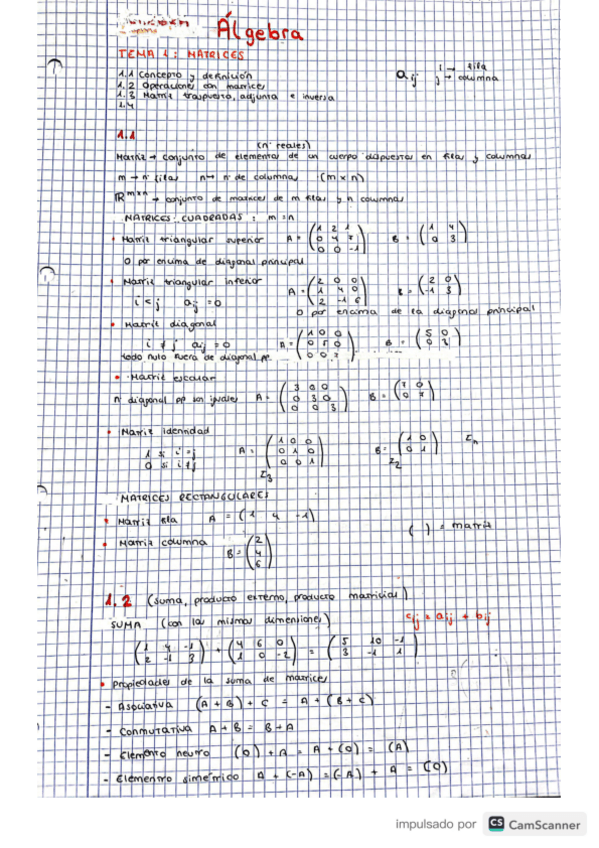 Álgebra
TEMA 1: MATRICES
1.1 Concepto y definición
1.2 Operaciones con matrices
1.3 Matriz traspuesta, adjunta e inversa
1.4
aij i → fila
j → columna
1.1
(nº reales)
Matriz → conjunto de elementos de un cuerpo dispuestos en filas y columnas
m → nº filas n → nº de columnas (m x n)
ℝ^mxn → conjunto de matrices de m filas y n columnas
MATRICES CUADRADAS: m=n
• Matriz triangular superior A = (1 2 1 / 0 4 7 / 0 0 -1) B = (1 4 / 0 3)
0 por encima de diagonal principal
• Matriz triangular inferior A = (2 0 0 / 1 4 0 / 2 -1 6) B = (2 0 / -1 3)
i < j aij = 0
0 por encima de la diagonal principal
• Matriz diagonal
i ≠ j aij = 0 A = (1 0 0 / 0 5 0 / 0 0 7) B = (5 0 / 0 2)
todo nulo fuera de diagonal
• Matriz escalar
nº diagonal pp son iguales A = (3 0 0 / 0 3 0 / 0 0 3) B = (7 0 / 0 7)
• Matriz identidad
1 si i=j
0 si i≠j
A = (1 0 0 / 0 1 0 / 0 0 1) B = (1 0 / 0 1) In
I3 I2
MATRICES RECTANGULARES
• Matriz fila A = (1 4 -1)
( ) = matriz
• Matriz columna B = (2 / 4 / 6)
1.2 (suma, producto externo, producto matricial)
SUMA (con las mismas dimensiones) cij = aij + bij
(1 4 -1 / 2 -1 3) + (4 6 0 / 1 0 -2) = (5 10 -1 / 3 -1 1)
• Propiedades de la suma de matrices
- Asociativa (A + B) + C = A + (B + C)
- Conmutativa A + B = B + A
- Elemento neutro (0) + A = A + (0) = (A)
- Elemento simétrico A + (-A) = (-A) + A = (0)
impulsado por CS CamScanner